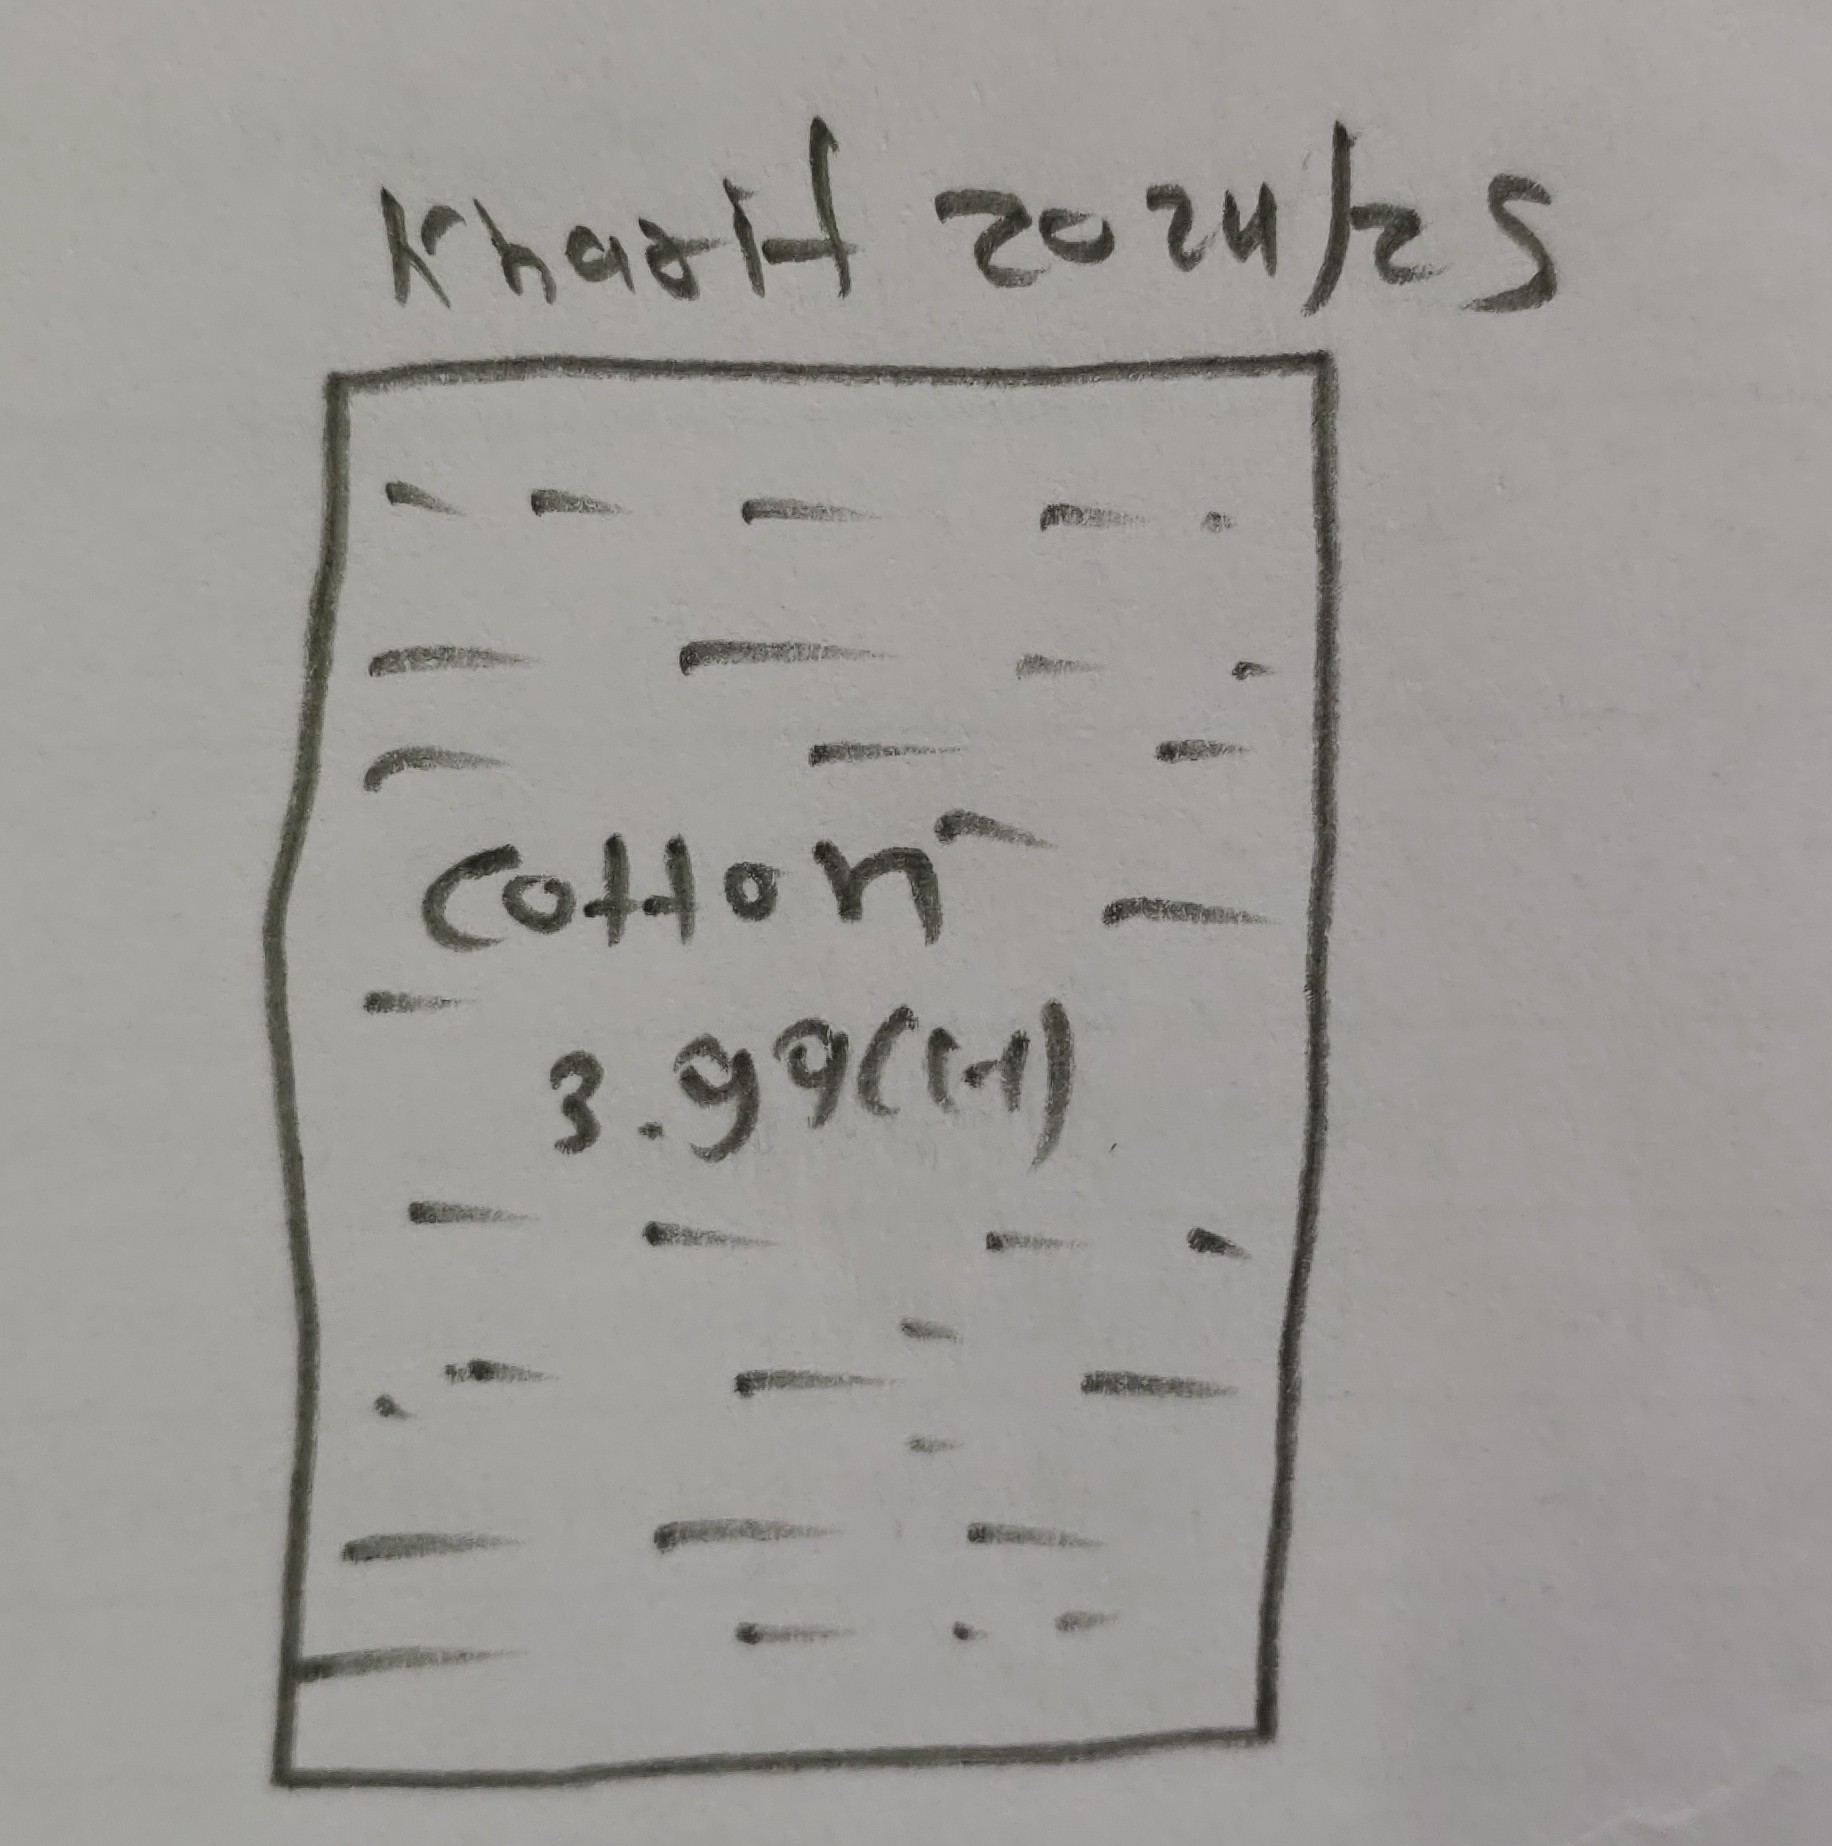 Kharif 2024/25
Cotton
3.99(H)